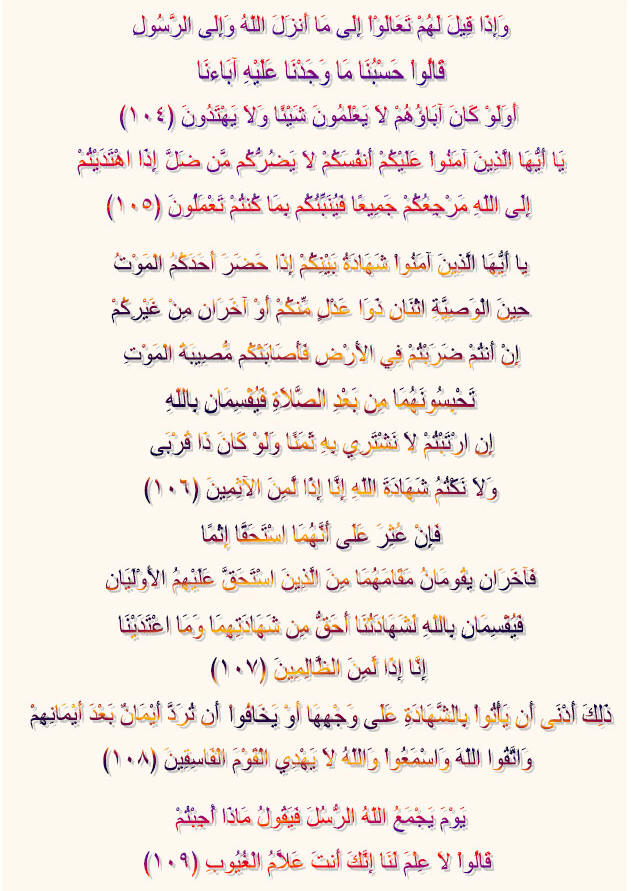 وَإِذَا قِيلَ لَهُمْ تَعَالَوْاْ إِلَى مَا أَنزَلَ اللّهُ وَإِلَى الرَّسُولِ
قَالُواْ حَسْبُنَا مَا وَجَدْنَا عَلَيْهِ آبَاءنَا
أَوَلَوْ كَانَ آبَاؤُهُمْ لاَ يَعْلَمُونَ شَيْئًا وَلاَ يَهْتَدُونَ (١٠٤)
يَا أَيُّهَا الَّذِينَ آمَنُواْ عَلَيْكُمْ أَنفُسَكُمْ لاَ يَضُرُّكُم مَّن ضَلَّ إِذَا اهْتَدَيْتُمْ
إِلَى اللّهِ مَرْجِعُكُمْ جَمِيعًا فَيُنَبِّئُكُم بِمَا كُنتُمْ تَعْمَلُونَ (١٠٥)
يا أَيُّهَا الَّذِينَ آمَنُواْ شَهَادَةُ بَيْنِكُمْ إِذَا حَضَرَ أَحَدَكُمُ الْمَوْتُ
حِينَ الْوَصِيَّةِ اثْنَانِ ذَوَا عَدْلٍ مِّنكُمْ أَوْ آخَرَانِ مِنْ غَيْرِكُمْ
إِنْ أَنتُمْ ضَرَبْتُمْ فِي الأَرْضِ فَأَصَابَتْكُم مُّصِيبَةُ الْمَوْتِ
تَحْبِسُونَهُمَا مِن بَعْدِ الصَّلاَةِ فَيُقْسِمَانِ بِاللّهِ
إِنِ ارْتَبْتُمْ لاَ نَشْتَرِي بِهِ ثَمَنًا وَلَوْ كَانَ ذَا قُرْبَى
وَلاَ نَكْتُمُ شَهَادَةَ اللّهِ إِنَّا إِذًا لَّمِنَ الآثِمِينَ (١٠٦)
فَإِنْ عُثِرَ عَلَى أَنَّهُمَا اسْتَحَقَّا إِثْمًا
فَآخَرَانِ يِقُومَانُ مَقَامَهُمَا مِنَ الَّذِينَ اسْتَحَقَّ عَلَيْهِمُ الأَوْلَيَانِ
فَيُقْسِمَانِ بِاللّهِ لَشَهَادَتُنَا أَحَقُّ مِن شَهَادَتِهِمَا وَمَا اعْتَدَيْنَا
إِنَّا إِذًا لَّمِنَ الظَّالِمِينَ (١٠٧)
ذَلِكَ أَدْنَى أَن يَأْتُواْ بِالشَّهَادَةِ عَلَى وَجْهِهَا أَوْ يَخَافُواْ أَن تُرَدَّ أَيْمَانٌ بَعْدَ أَيْمَانِهِمْ
وَاتَّقُوا اللّهَ وَاسْمَعُواْ وَاللّهُ لاَ يَهْدِي الْقَوْمَ الْفَاسِقِينَ (١٠٨)
يَوْمَ يَجْمَعُ اللّهُ الرُّسُلَ فَيَقُولُ مَاذَا أُجِبْتُمْ
قَالُواْ لاَ عِلْمَ لَنَا إِنَّكَ أَنتَ عَلاَّمُ الْغُيُوبِ (١٠٩)